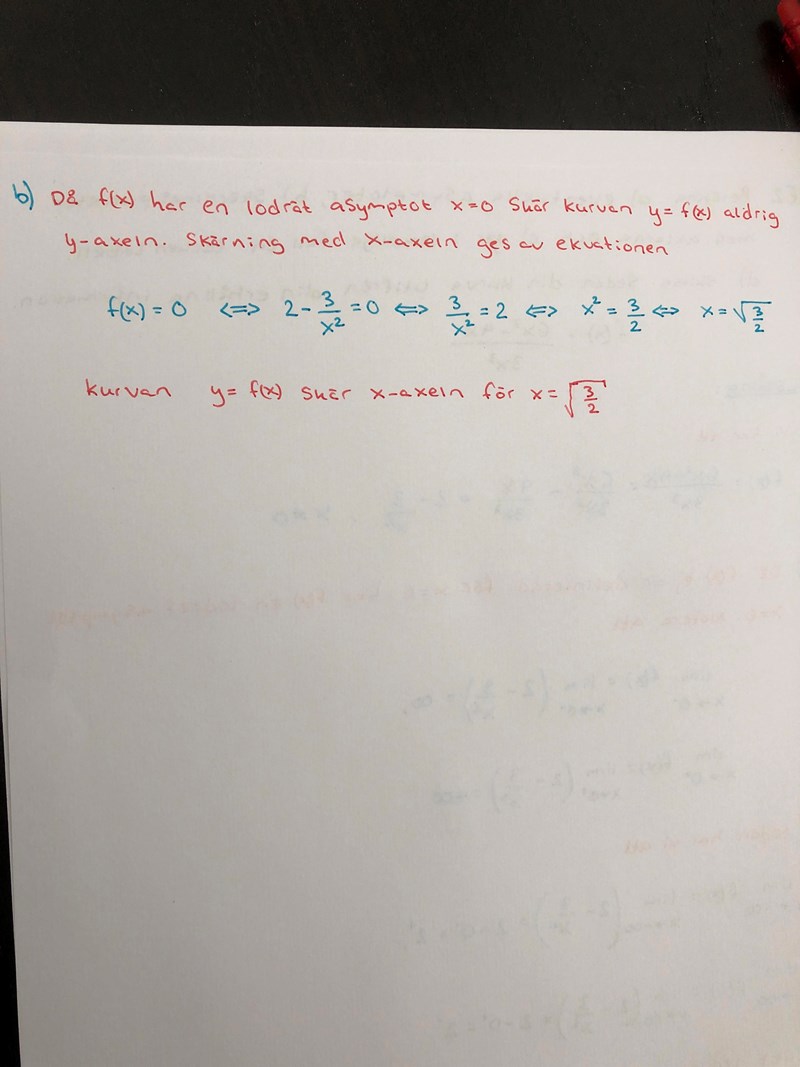 b) Då f(x) har en lodrät asymptot x=0 skär kurvan y= f(x) aldrig
y-axeln. Skärning med x-axeln ges av ekvationen
f(x) = 0 <=> 2 - 3/x² = 0 <=> 3/x² = 2 <=> x² = 3/2 <=> x = √(3/2)
kurvan y= f(x) skär x-axeln för x = √(3/2)